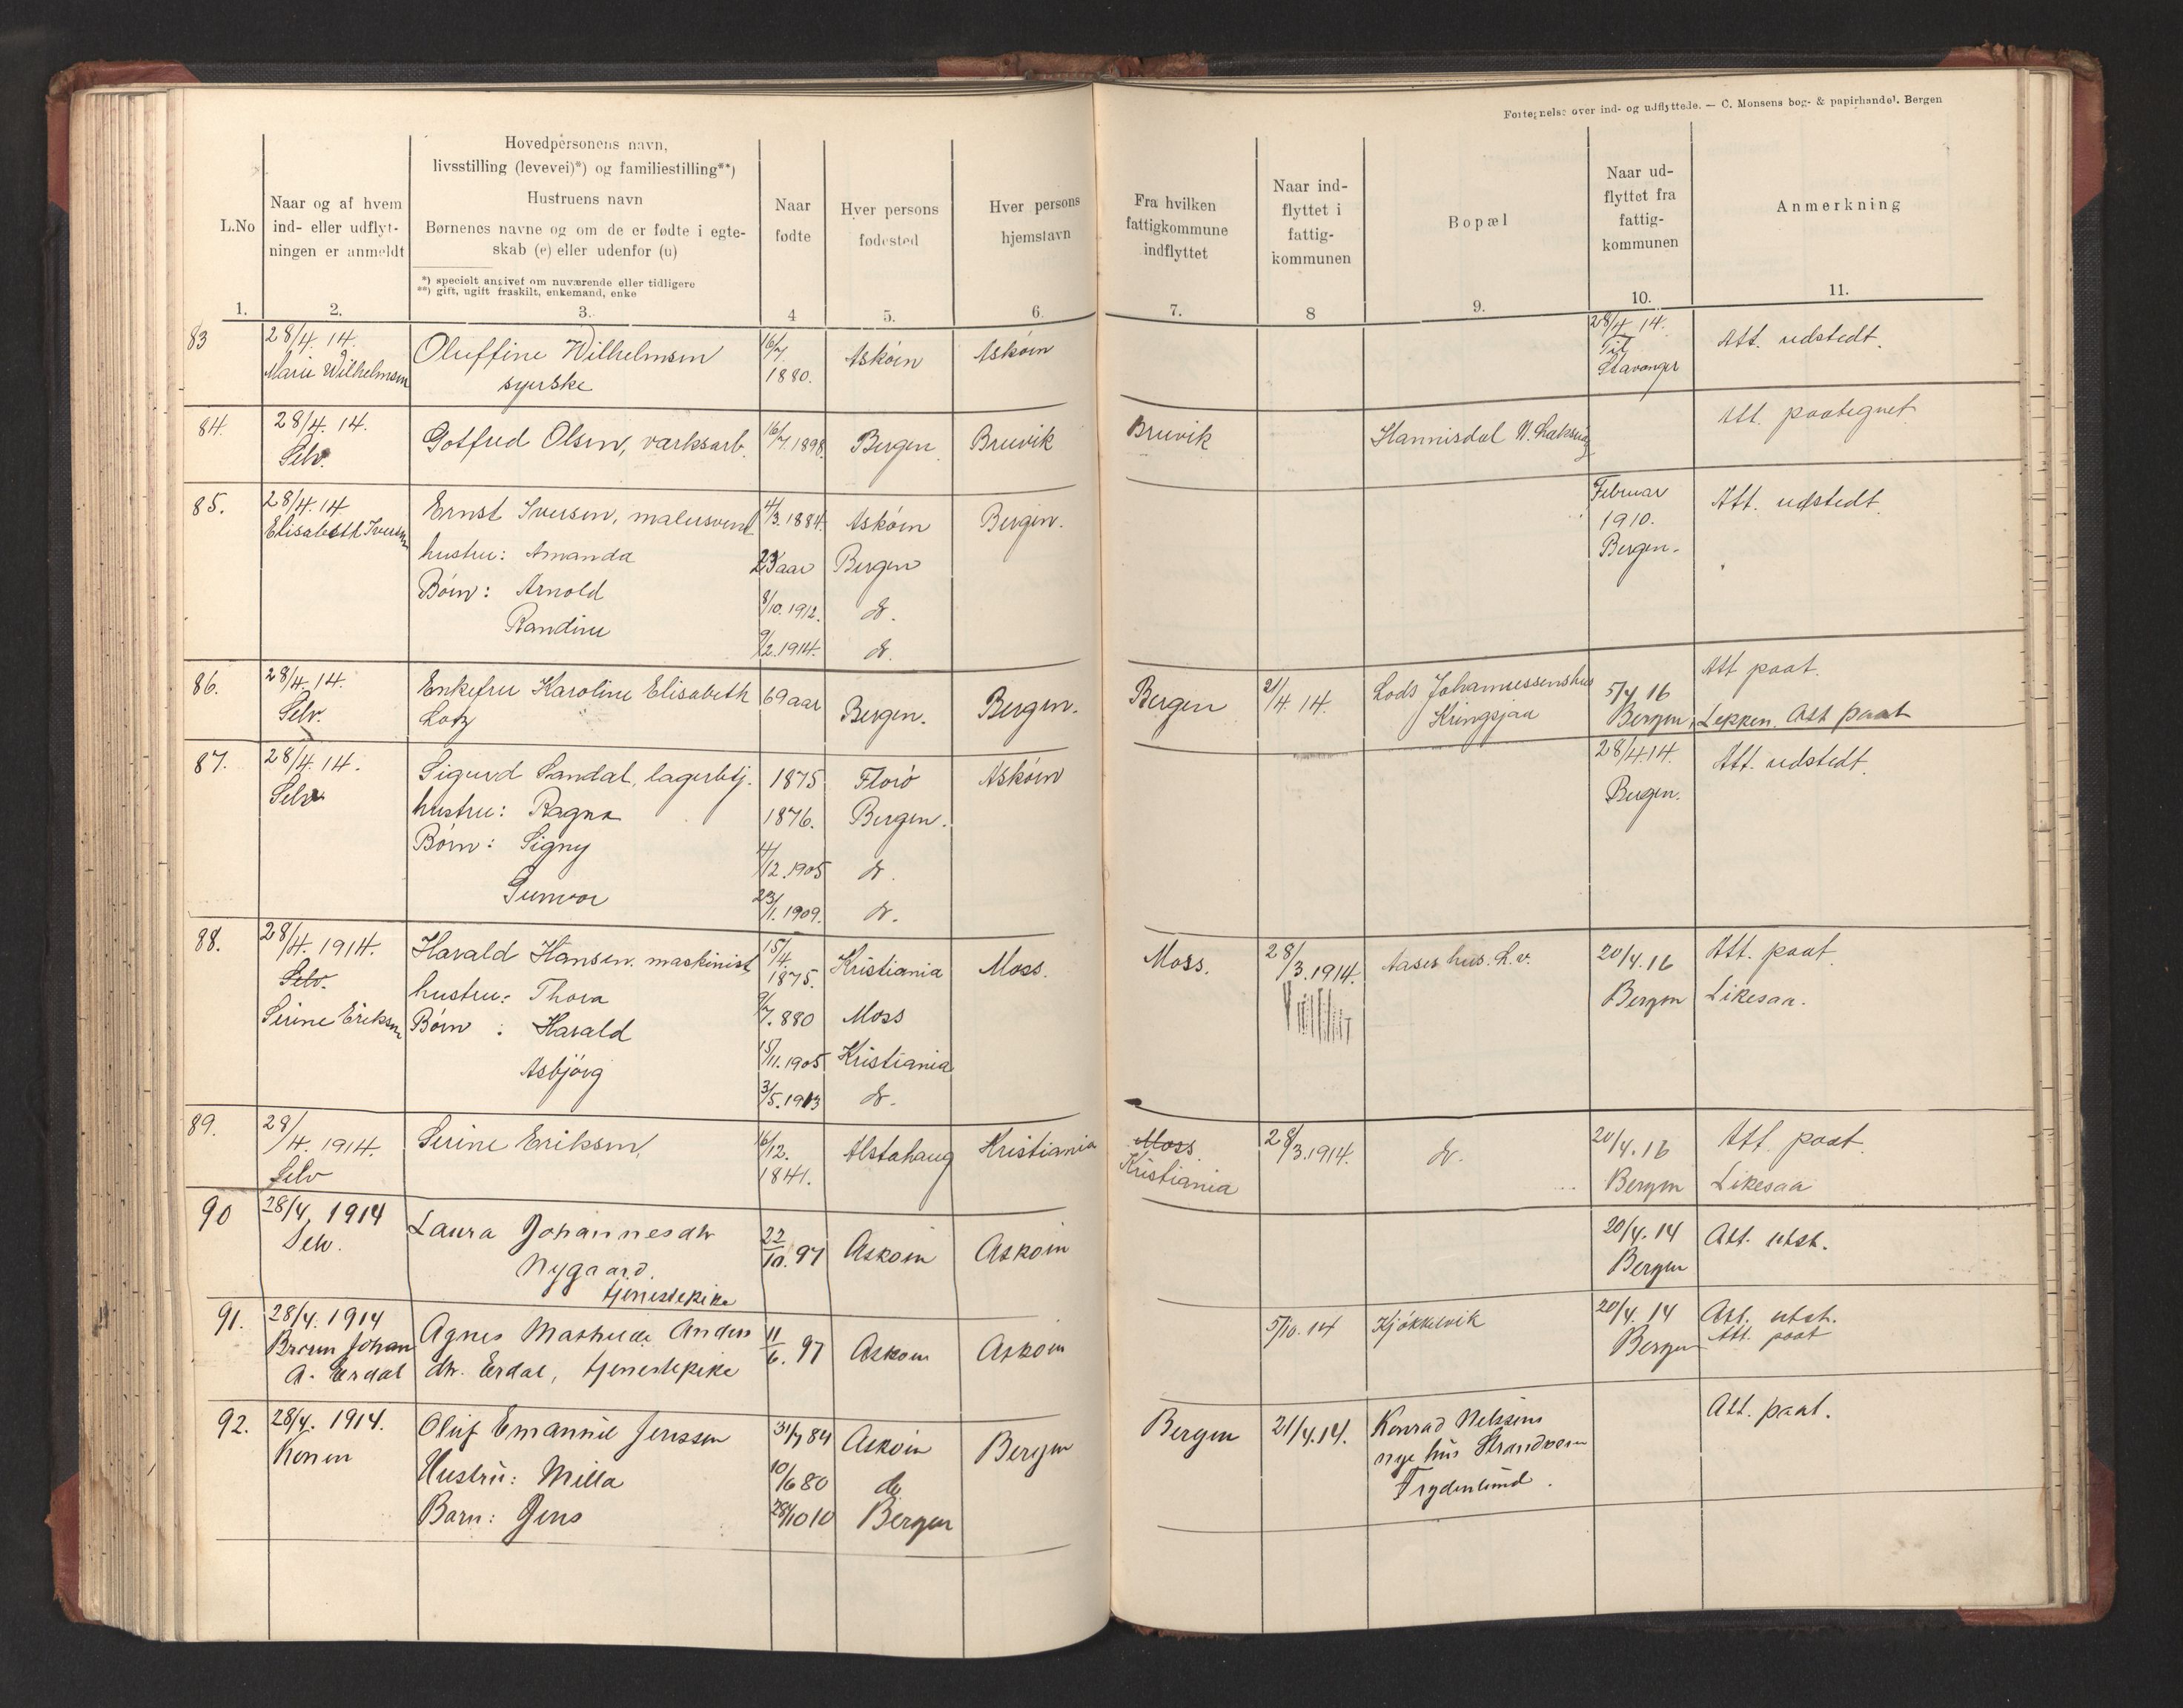 Fortegnelse over ind- og udflyttede. — C. Monsens bog- & papirhandel. Bergen
L.No
Naar og af hvem
ind- eller udflyt-
ningen er anmeldt
Hovedpersonens navn,
livsstilling (levevei)*) og familiestilling**)
Hustruens navn
Børnenes navne og om de er fødte i egte-
skab (e) eller udenfor (u)
*) specielt angivet om nuværende eller tidligere
**) gift, ugift fraskilt, enkemand, enke
Naar
fødte
Hver persons
fødested
Hver persons
hjemstavn
Fra hvilken
fattigkommune
indflyttet
Naar ind-
flyttet i
fattig-
kommunen
Bopæl
Naar ud-
flyttet fra
fattig-
kommunen
Anmerkning
1. 2. 3. 4 5. 6. 7. 8 9. 10. 11.
83 28/4. 14. Marie Wilhelmsen
Oluffine Wilhelmsen
syerske
16/7. 1880. Askøen Askøen
28/4. 14. Til Stavanger
Att. udstedt.
84. 28/4. 14. Selv.
Gotfred Olsen, værksarb.
16/7. 1898. Bergen. Bruvik
Bruvik
Hannisdal N. Laksevåg
Att. paategnet
85. 28/4. 14 Elisabeth Iversen
Ernst Iversen, malersvend 4/3. 1884. Askøen Bergen.
hustru: Amanda 23 aar Bergen
Børn: Arnold 8/10. 1912. do.
Randine 9/2. 1914. do.
Februar 1910. Bergen.
Att. udstedt.
86. 28/4. 14. Selv.
Enkefru Karoline Elisabeth
Lotz
69 aar Bergen. Bergen.
Bergen 21/4. 14.
Lods Johannessens hus
Kringsjaa
5/4 16 Bergen,
Att paat.
Lepken. Att paat
87. 28/4. 14. Selv
Sigurd Sandal, lagerbtj. 1875 Florø Askøen
hustru: Ragna 1876. Bergen.
Børn: Signy 4/12. 1905 do.
Gunvor 23/1. 1909. do.
28/4. 14. Bergen.
Att. udstedt.
88. 28/4. 1914. Selv. Serine Eriksen
Harald Hansen. maskinist 15/4. 1875. Kristiania Moss.
hustru: Thora 9/7. 880 Moss
Børn: Harald 15/11. 1905 Kristiania
Asbjørg 3/5. 1913 do.
Moss. 28/3. 1914.
Aases hus. L.v.
20/4. 16 Bergen
Att. paat.
Likesaa.
89. 28/4. 1914. Selv
Serine Eriksen, 16/12. 1841. Alstahaug Kristiania
Moss.
Kristiania
28/3. 1914. do.
20/4. 16 Bergen
Att. paat.
Likesaa
90 28/4. 1914 Selv.
Laura Johannesdtr
Nygaard.
tjenestepike
22/10. 97 Askøin Askøin
20/4. 14 Bergen
Att. utst.
91. 28/4. 1914
Johan
A. Erdal
Agnes Mathilde Anders
dtr. Erdal, tjenestepike
11/6. 97 Askøin Askøin
5/10. 14 Kjøkkelvik
20/4. 14 Bergen
Att. utst.
Att. paat
92. 28/4. 1914. Konen
Oluf Emanuel Jenssen 31/7 84 Askøin Bergen
Hustru: Milla 10/6 80 do
Barn: Jens 28/10 10 Bergen
Bergen 21/4. 14.
Konrad Nilssens
nye hus Strandveien
Frydenlund.
Att. paat.